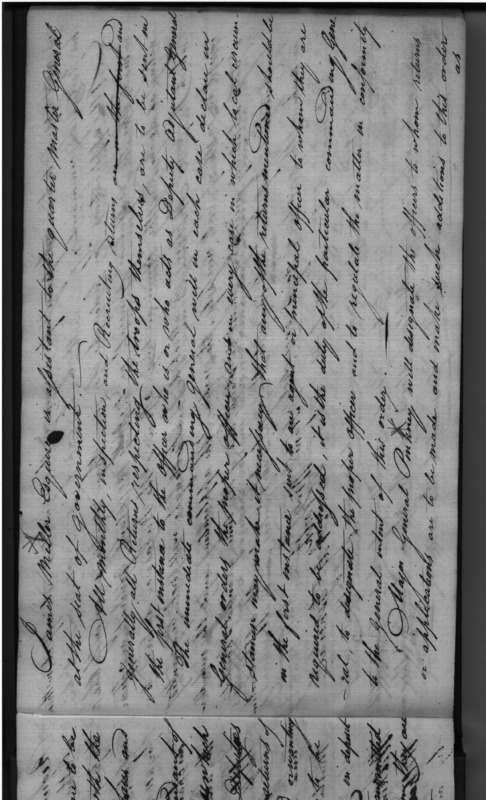 James Miller Esquire is assistant to the quarter Master General
at the seat of government.
All monthly, inspection, and Recruiting returns, and
generally all Returns respecting the troops themselves, are to be sent in
the first instance to the officer who is or who acts as Deputy Adjutant General
The immediate commanding general will in each case declare in
general orders the proper officer, and in every case in which local circum-
stances may make it necessary that any of the returns mentioned should be
in the first instance sent to an agent or principal officer to whom they are
required to be addressed, it is the duty of the particular commanding Gene
ral to designate the proper officer and to regulate the matter in conformity
to the general intent of this order.
Major General Pinckney will designate the officers to whom returns
or applications are to be made and make such additions to this order
as
are to be
the the
and
of
which
of
to be
in
that
they are